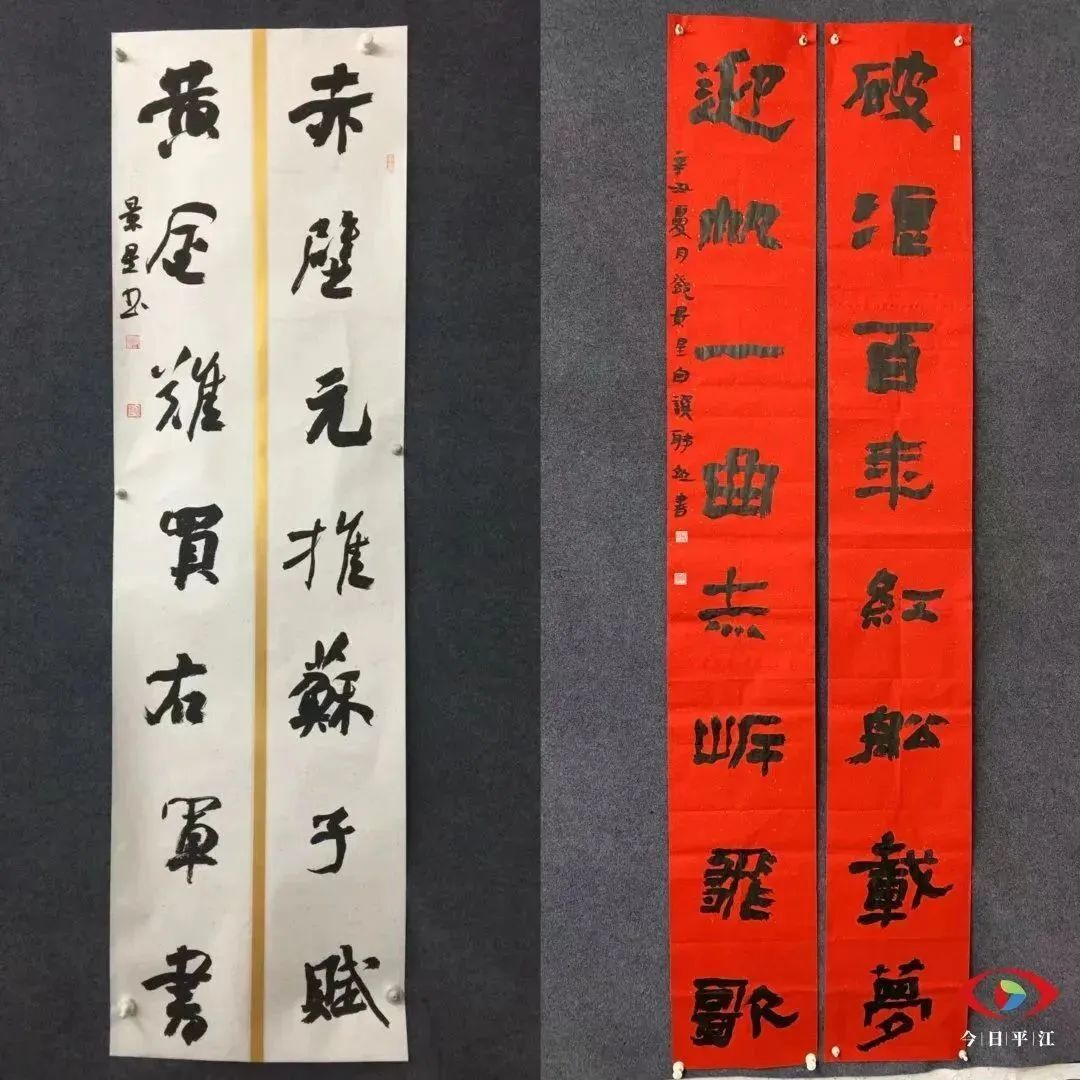 赤壁元推蘇子賦
黃金難買右軍書
景星书
破浪百年紅船載夢
迎帆一曲赤岸飛歌
辛丑夏月景星自撰聯並書
今日平江